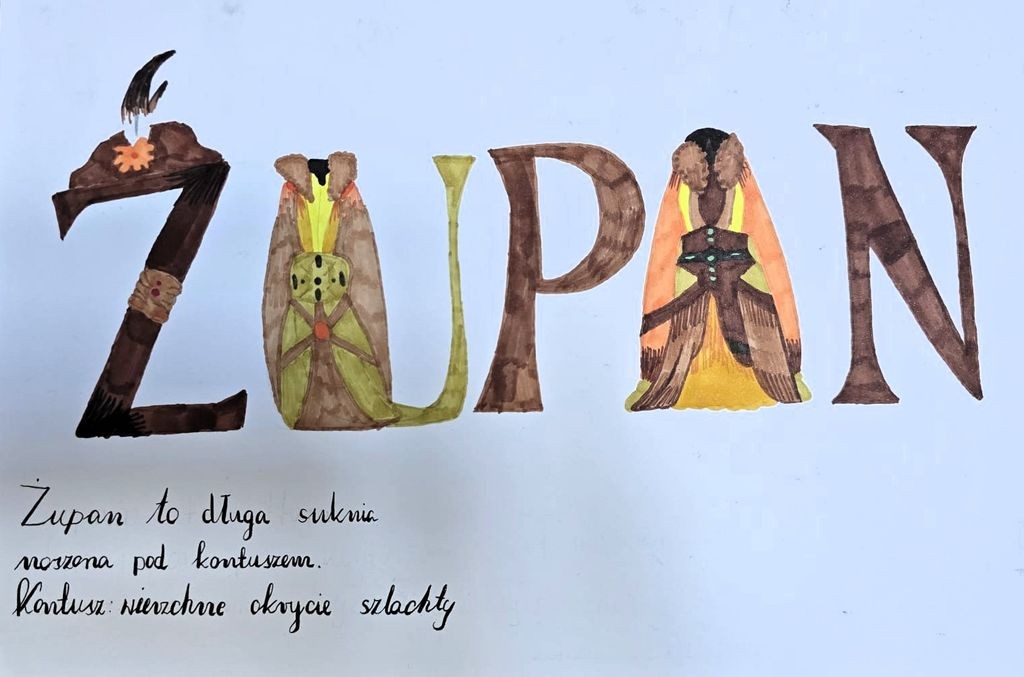 ŻUPAN
Żupan to długa suknia
noszona pod kontuszem.
Kontusz: wierzchnie okrycie szlachty